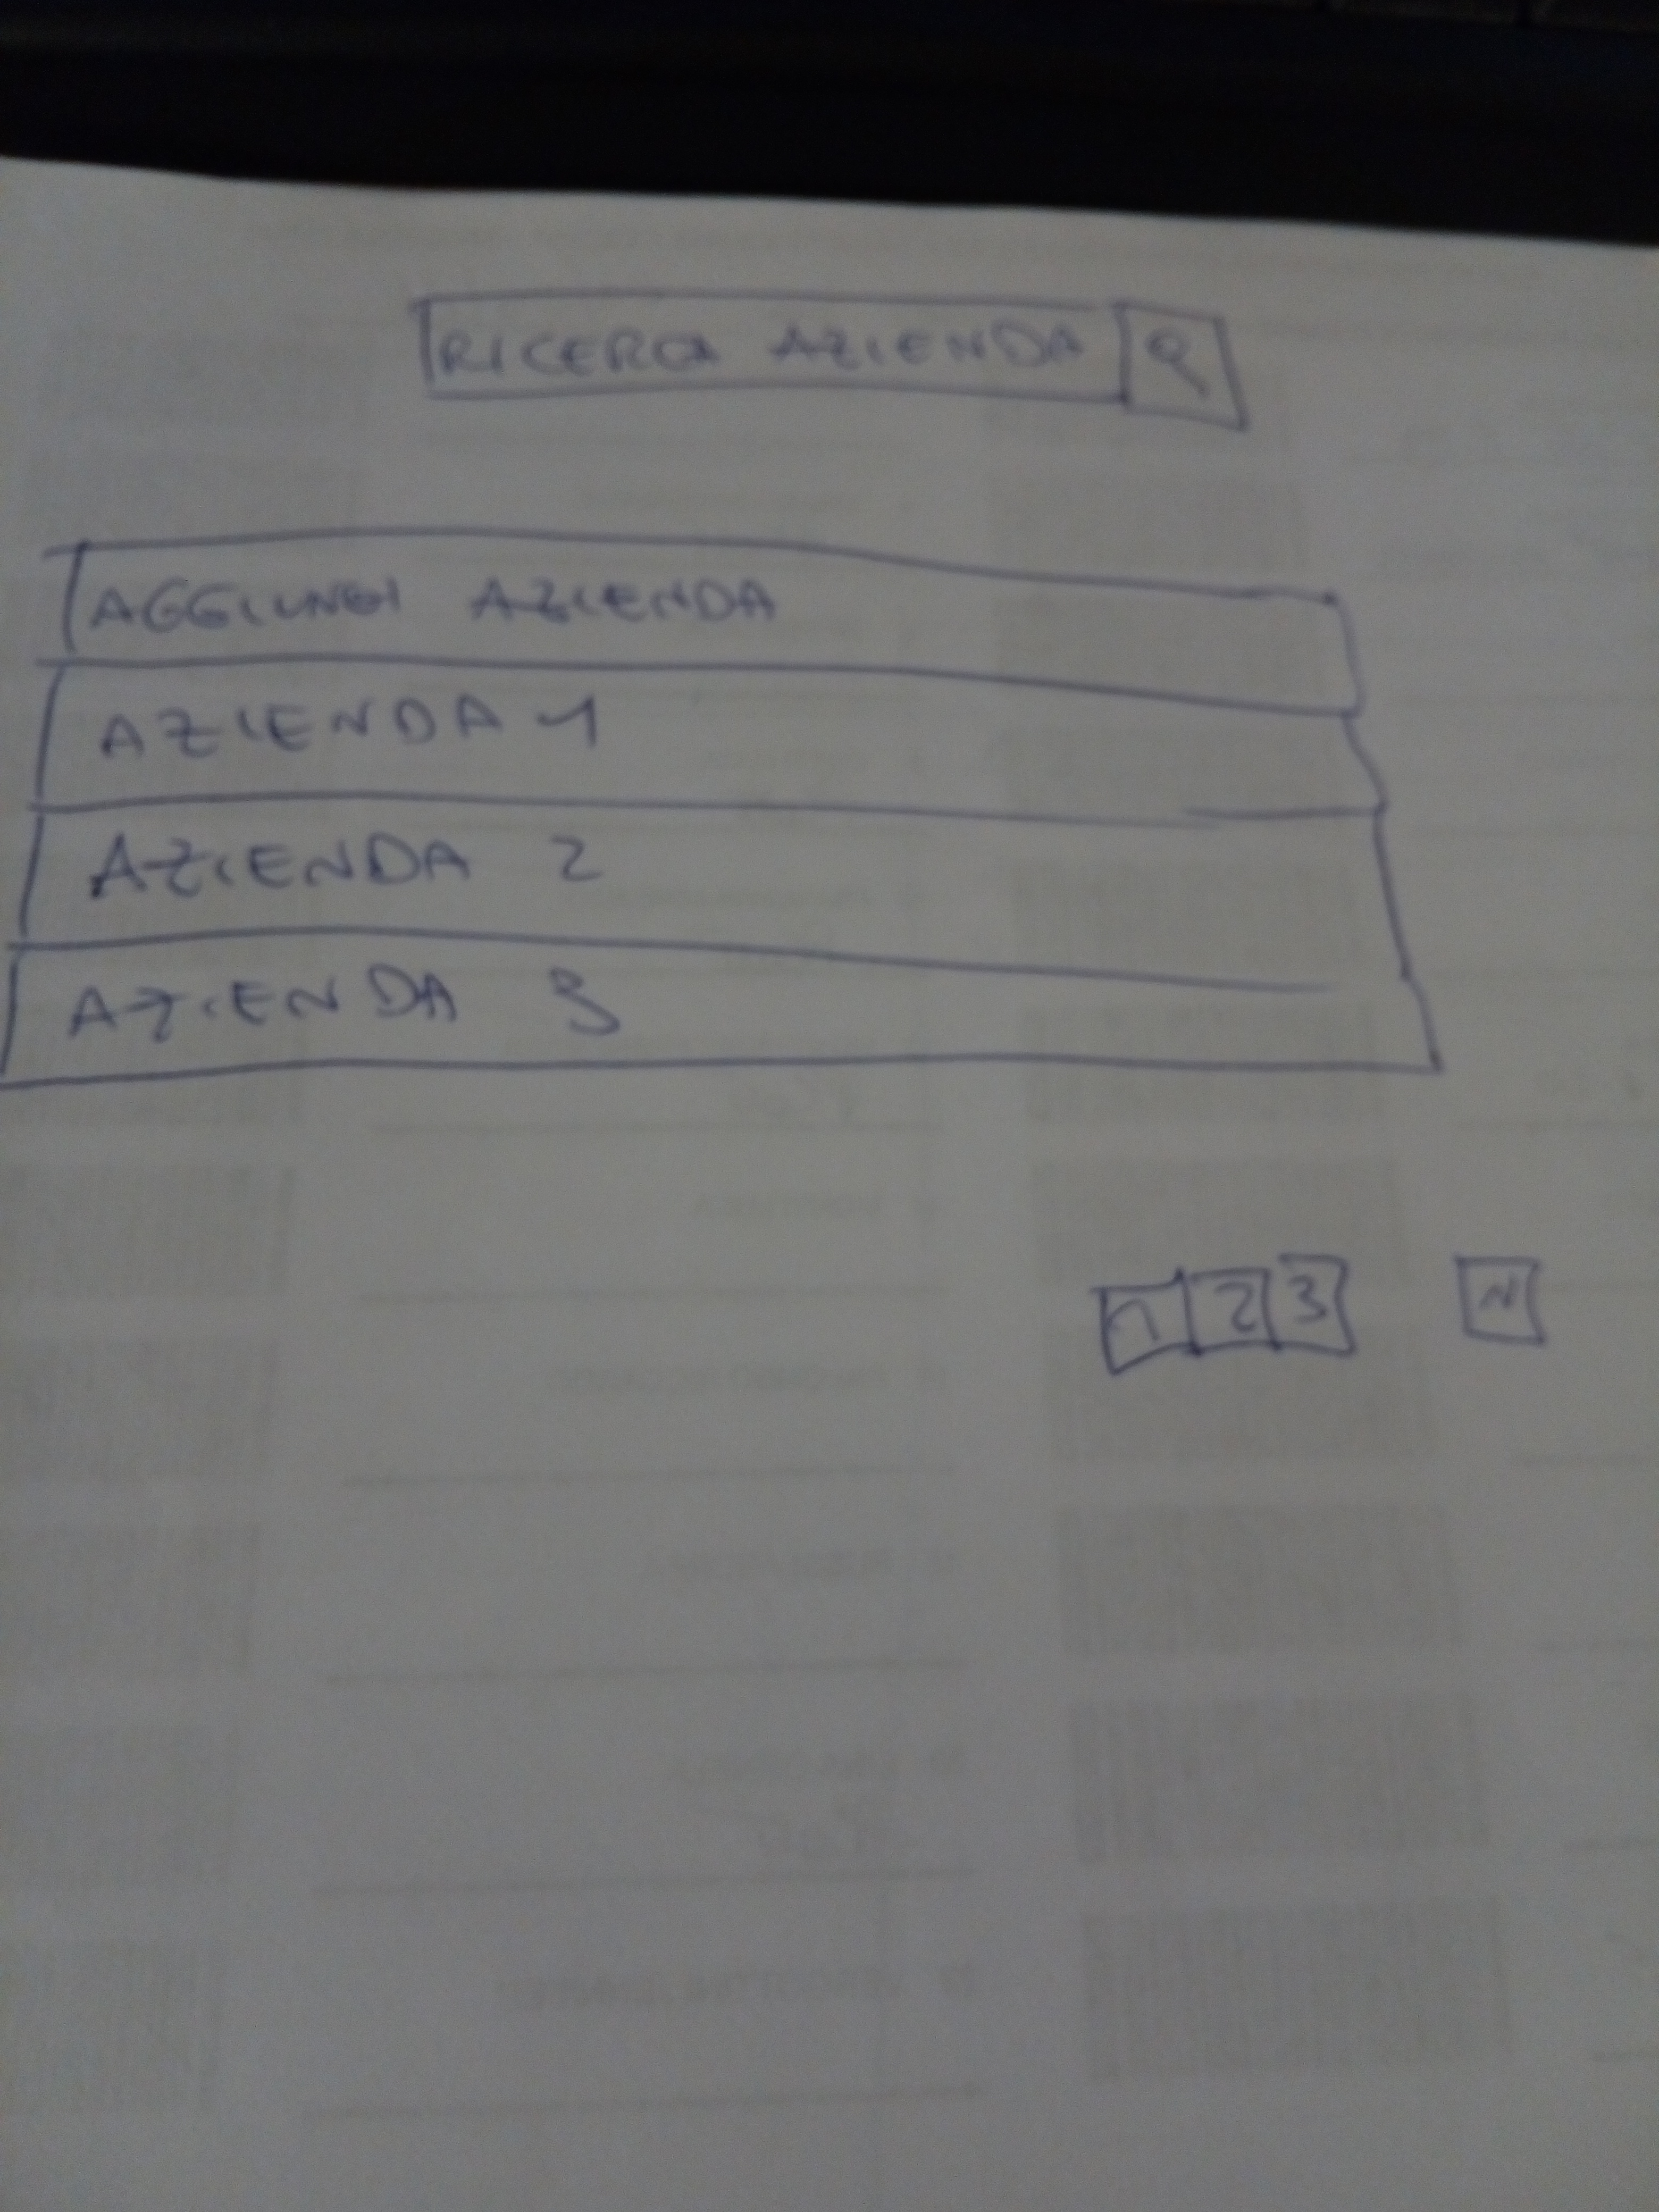 RICERCA AZIENDA
AGGIUNGI AZIENDA
AZIENDA 1
AZIENDA 2
AZIENDA 3
1 2 3 N